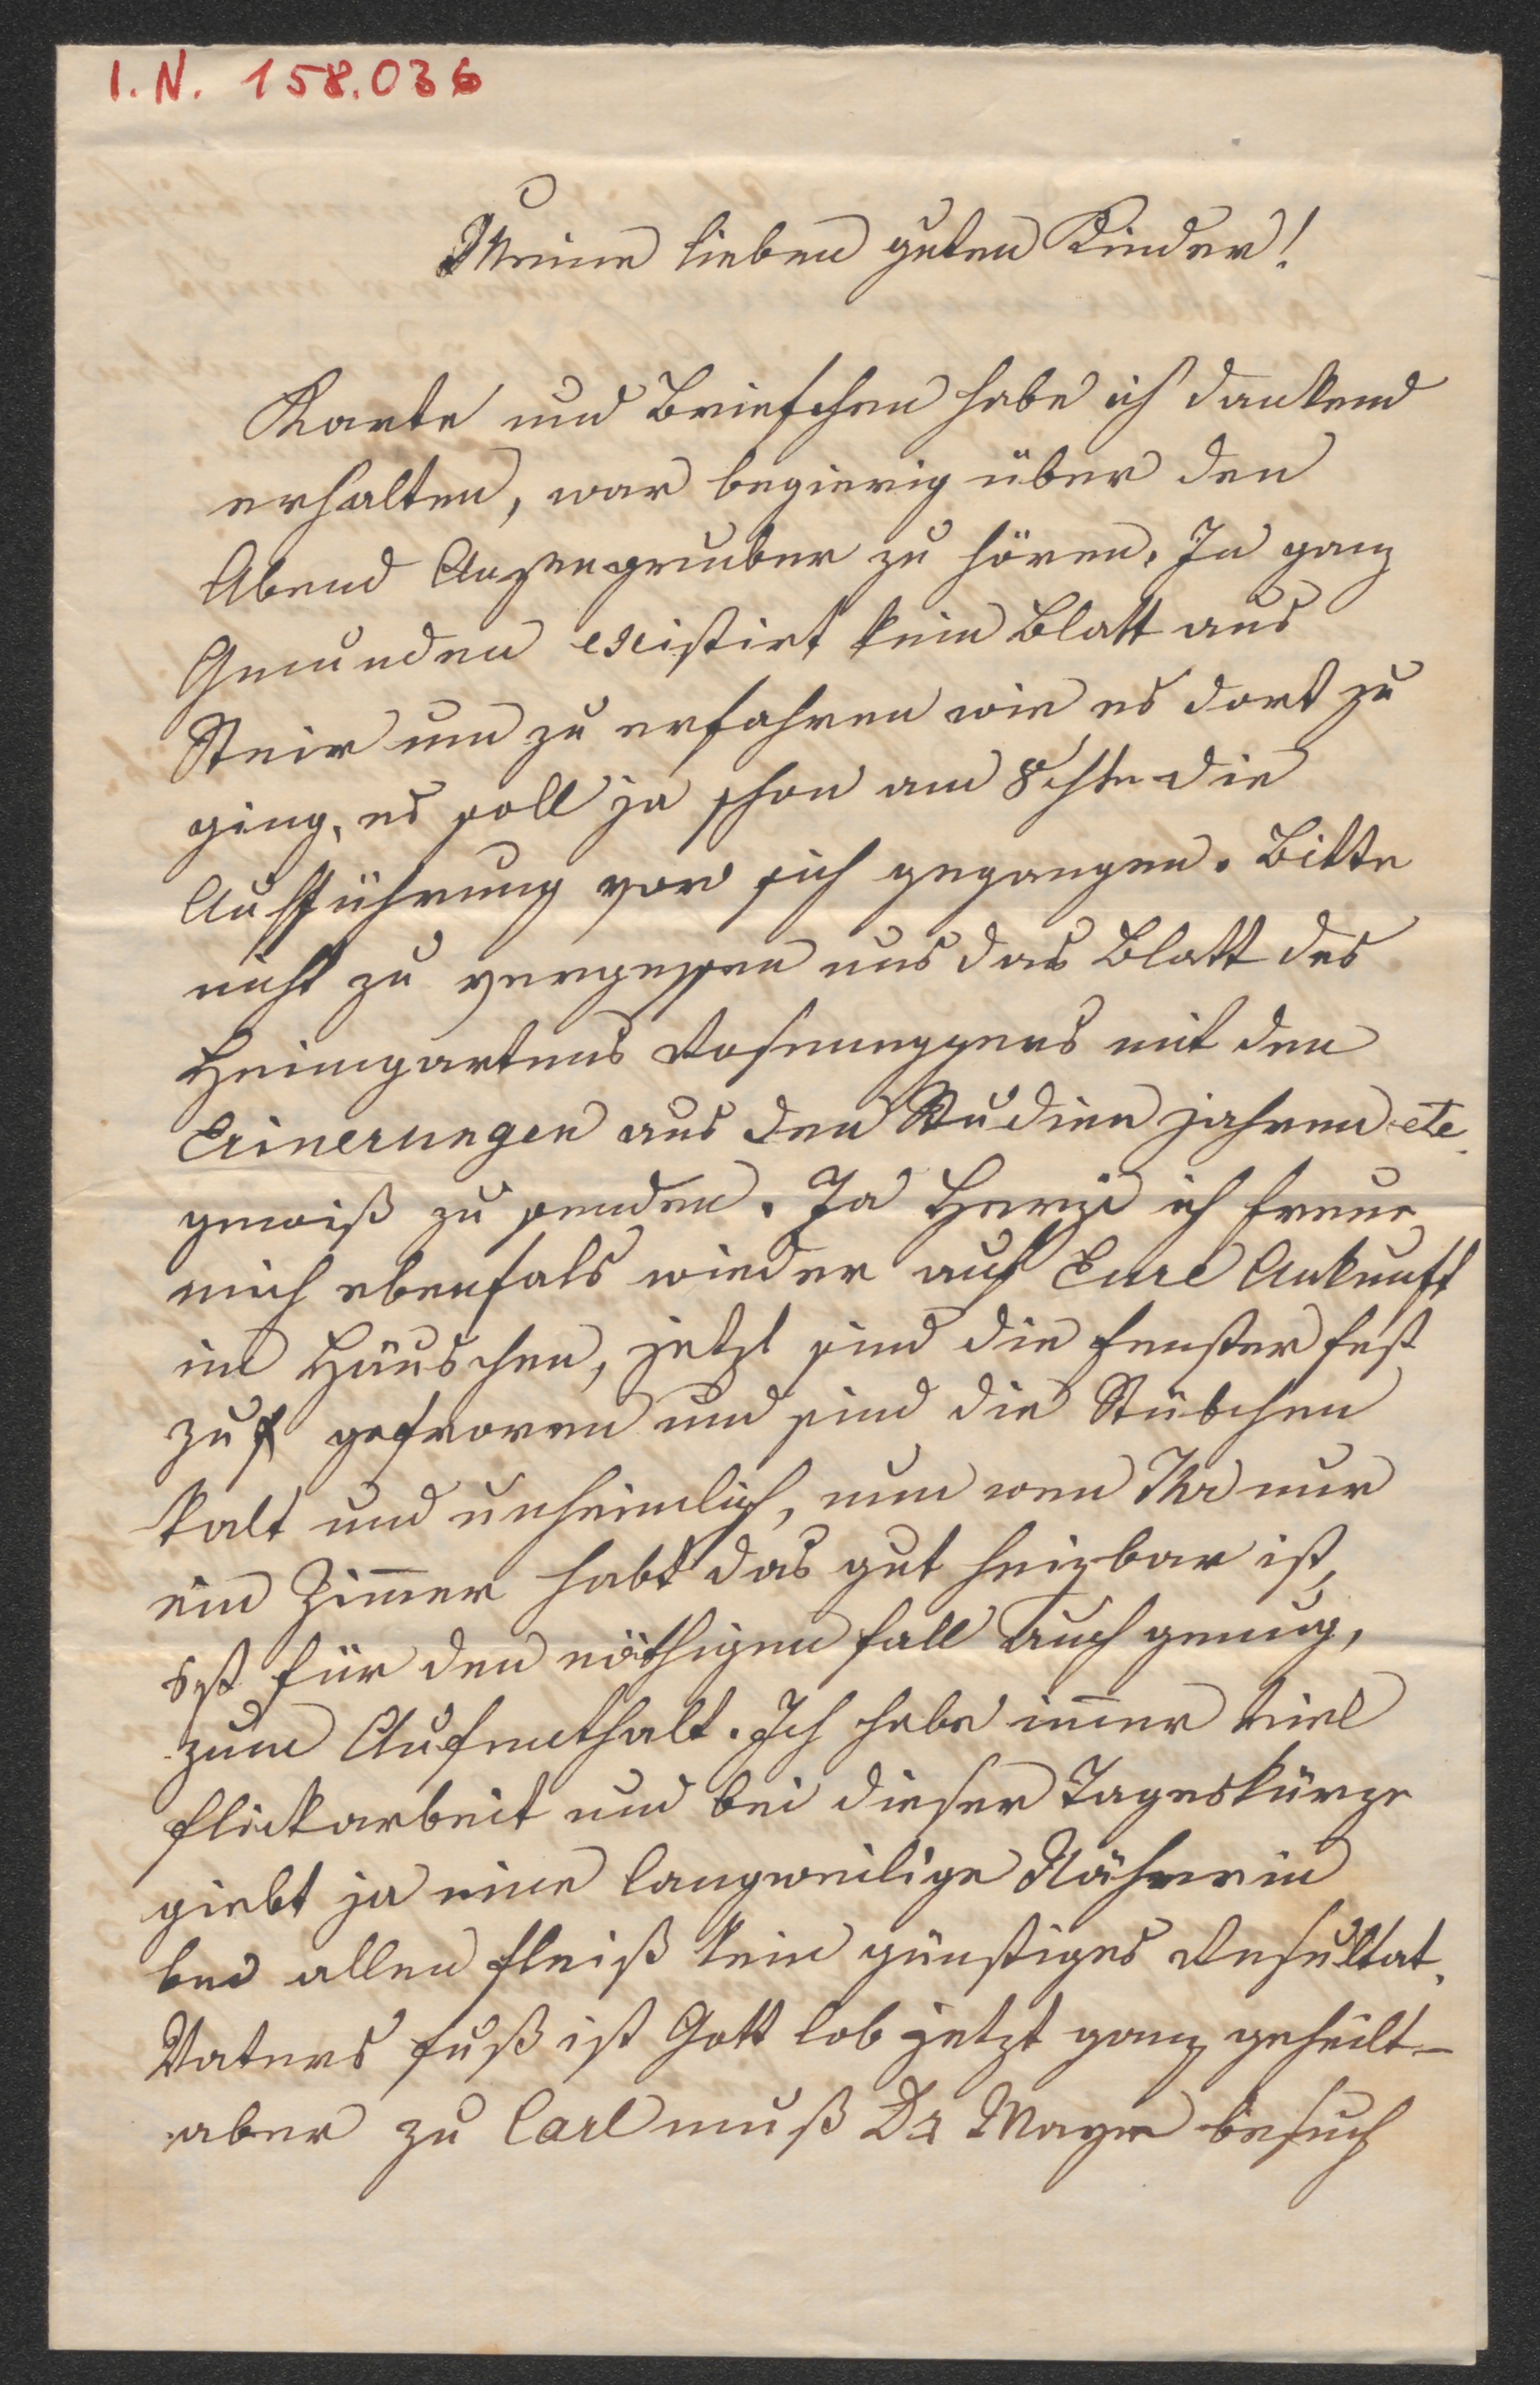 I.N. 158.036
Meine lieben guten Kinder!
Karte und Briefchen habe ich dankend
erhalten, war begierig über den
Abend Anzengruber zu hören. In ganz
Gmunden existirt kein Blatt aus
Steir um zu erfahren wie es dort zu
ging, es soll ja schon am 8chte die
Aufführung vor sich gegangen. Bitte
nicht zu vergessen uns das Blatt des
Heimgartens Roseneggers mit den
Erinerungen aus den Studien jahren etc.
gewiß zu senden. Ja Herzi ich freue
mich ebenfals wieder auf Eure Ankunft
im Häuschen, jetzt sind die Fenster fest
zu gefroren und sind die Stübchen
kalt und unheimlich, nun wen Ihr nur
ein Zim̅er habt das gut heizbar ist,
ist für den nöthigen Fall auch genug,
zum Aufenthalt. Ich habe im̅er viel
Flickarbeit und bei dieser Tageskürze
giebt ja eine langweilige Näherin
bei allen Fleiß kein günstiges Resultat.
Vaters Fuß ist Gott lob jetzt ganz geheilt –
aber zu Carl muß Dr Mayer besuch